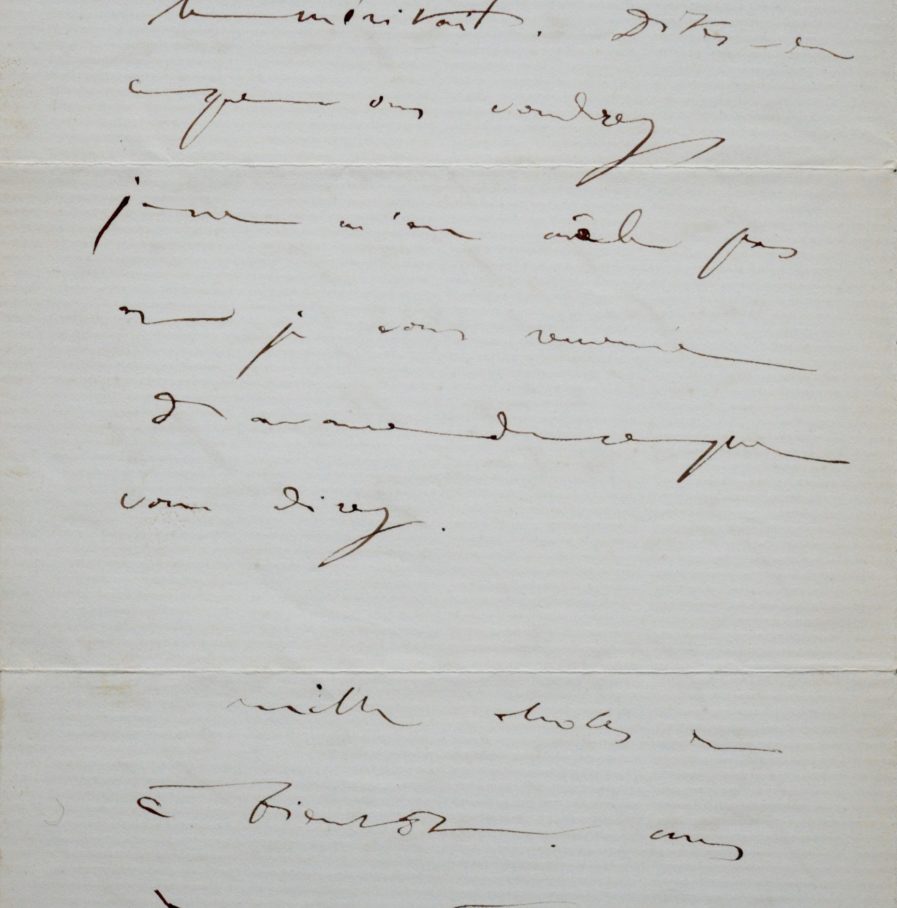 le méritait. Dites-en
ce que vous voudrez
je ne m'en mêle pas
et je vous remercie
d'avance de ce que
vous direz.
mille choses et
à bientôt.